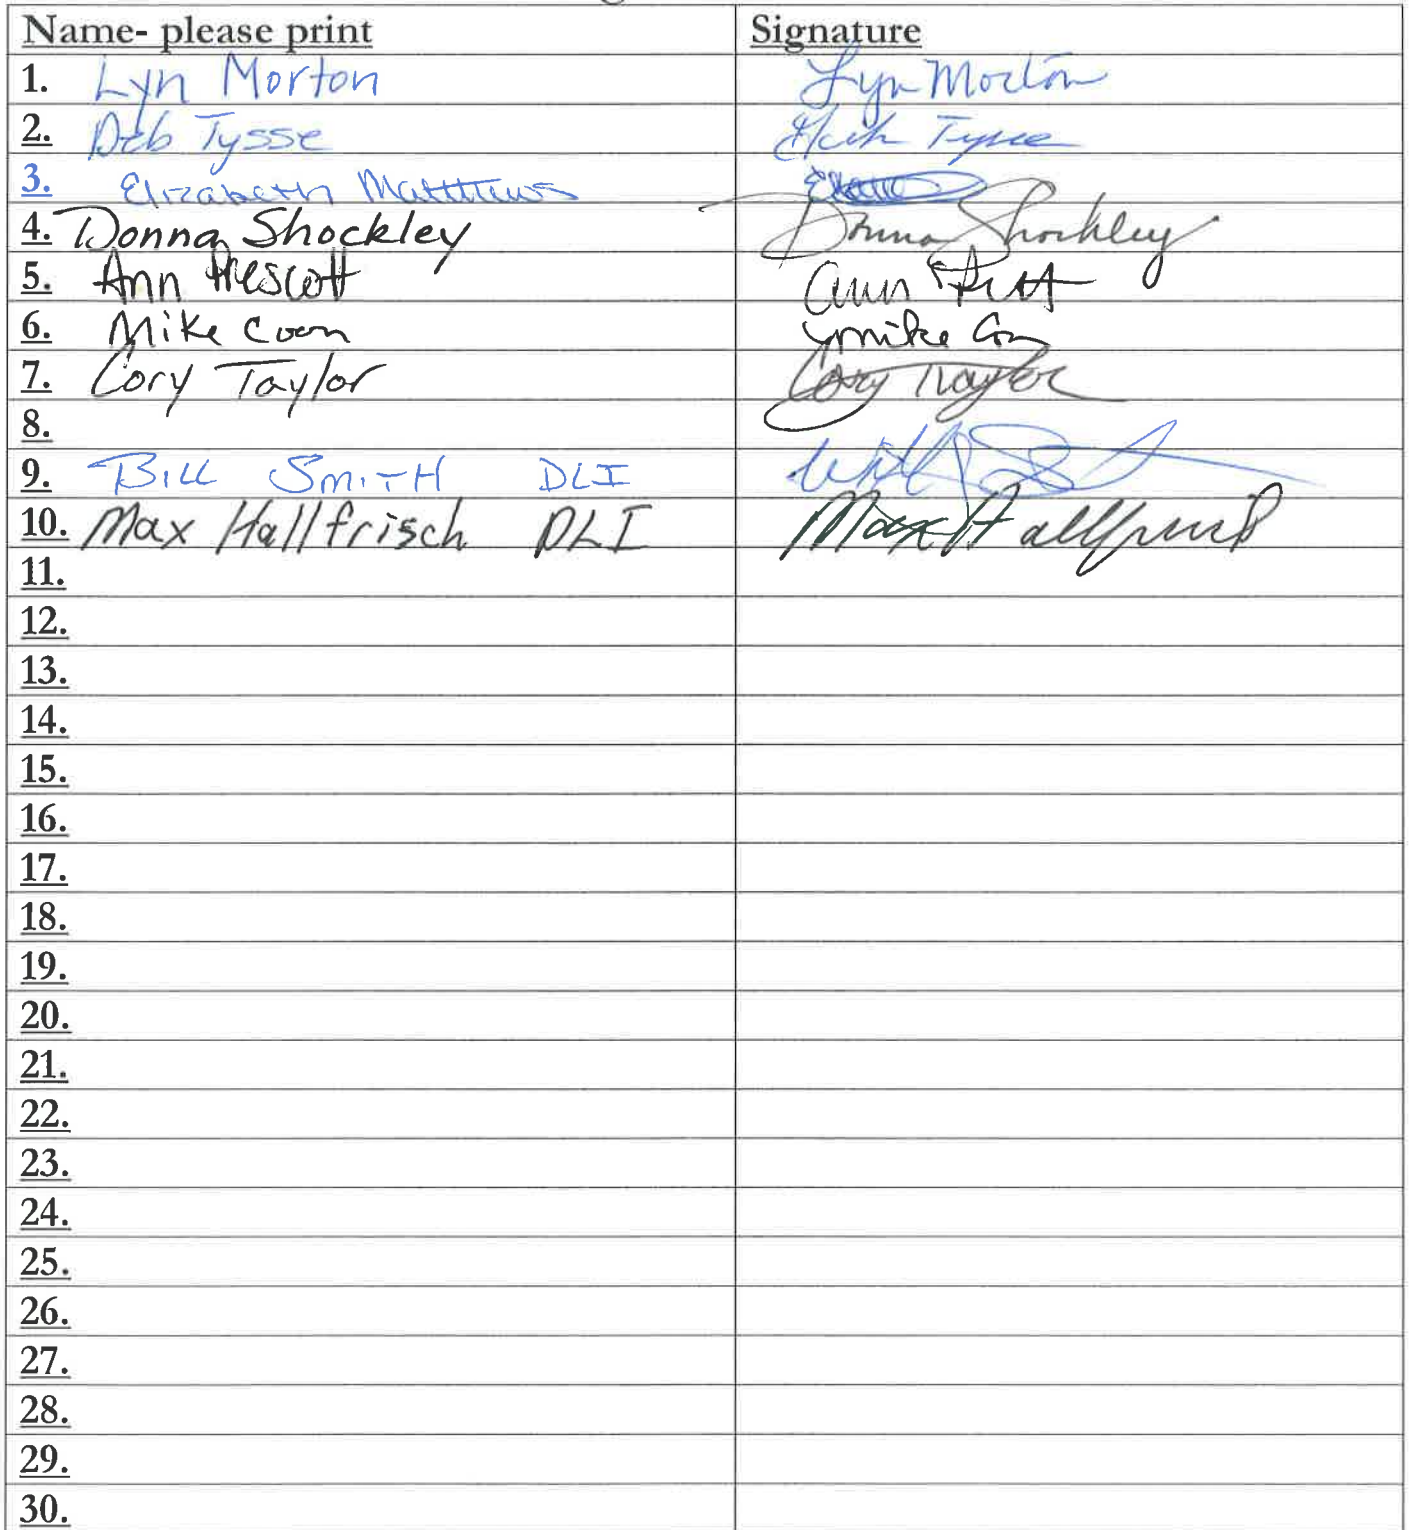 Name- please print Signature
1. Lyn Morton Lyn Morton
2. Deb Tysse Tysse
3. Elizabeth Matthews
4. Donna Shockley Donna Shockley
5. Ann Prescott Ann
6. Mike Coon Mike Coon
7. Cory Taylor Cory Taylor
8.
9. Bill Smith DLI
10. Max Hallfrisch DLI Max Hallfrisch
11.
12.
13.
14.
15.
16.
17.
18.
19.
20.
21.
22.
23.
24.
25.
26.
27.
28.
29.
30.